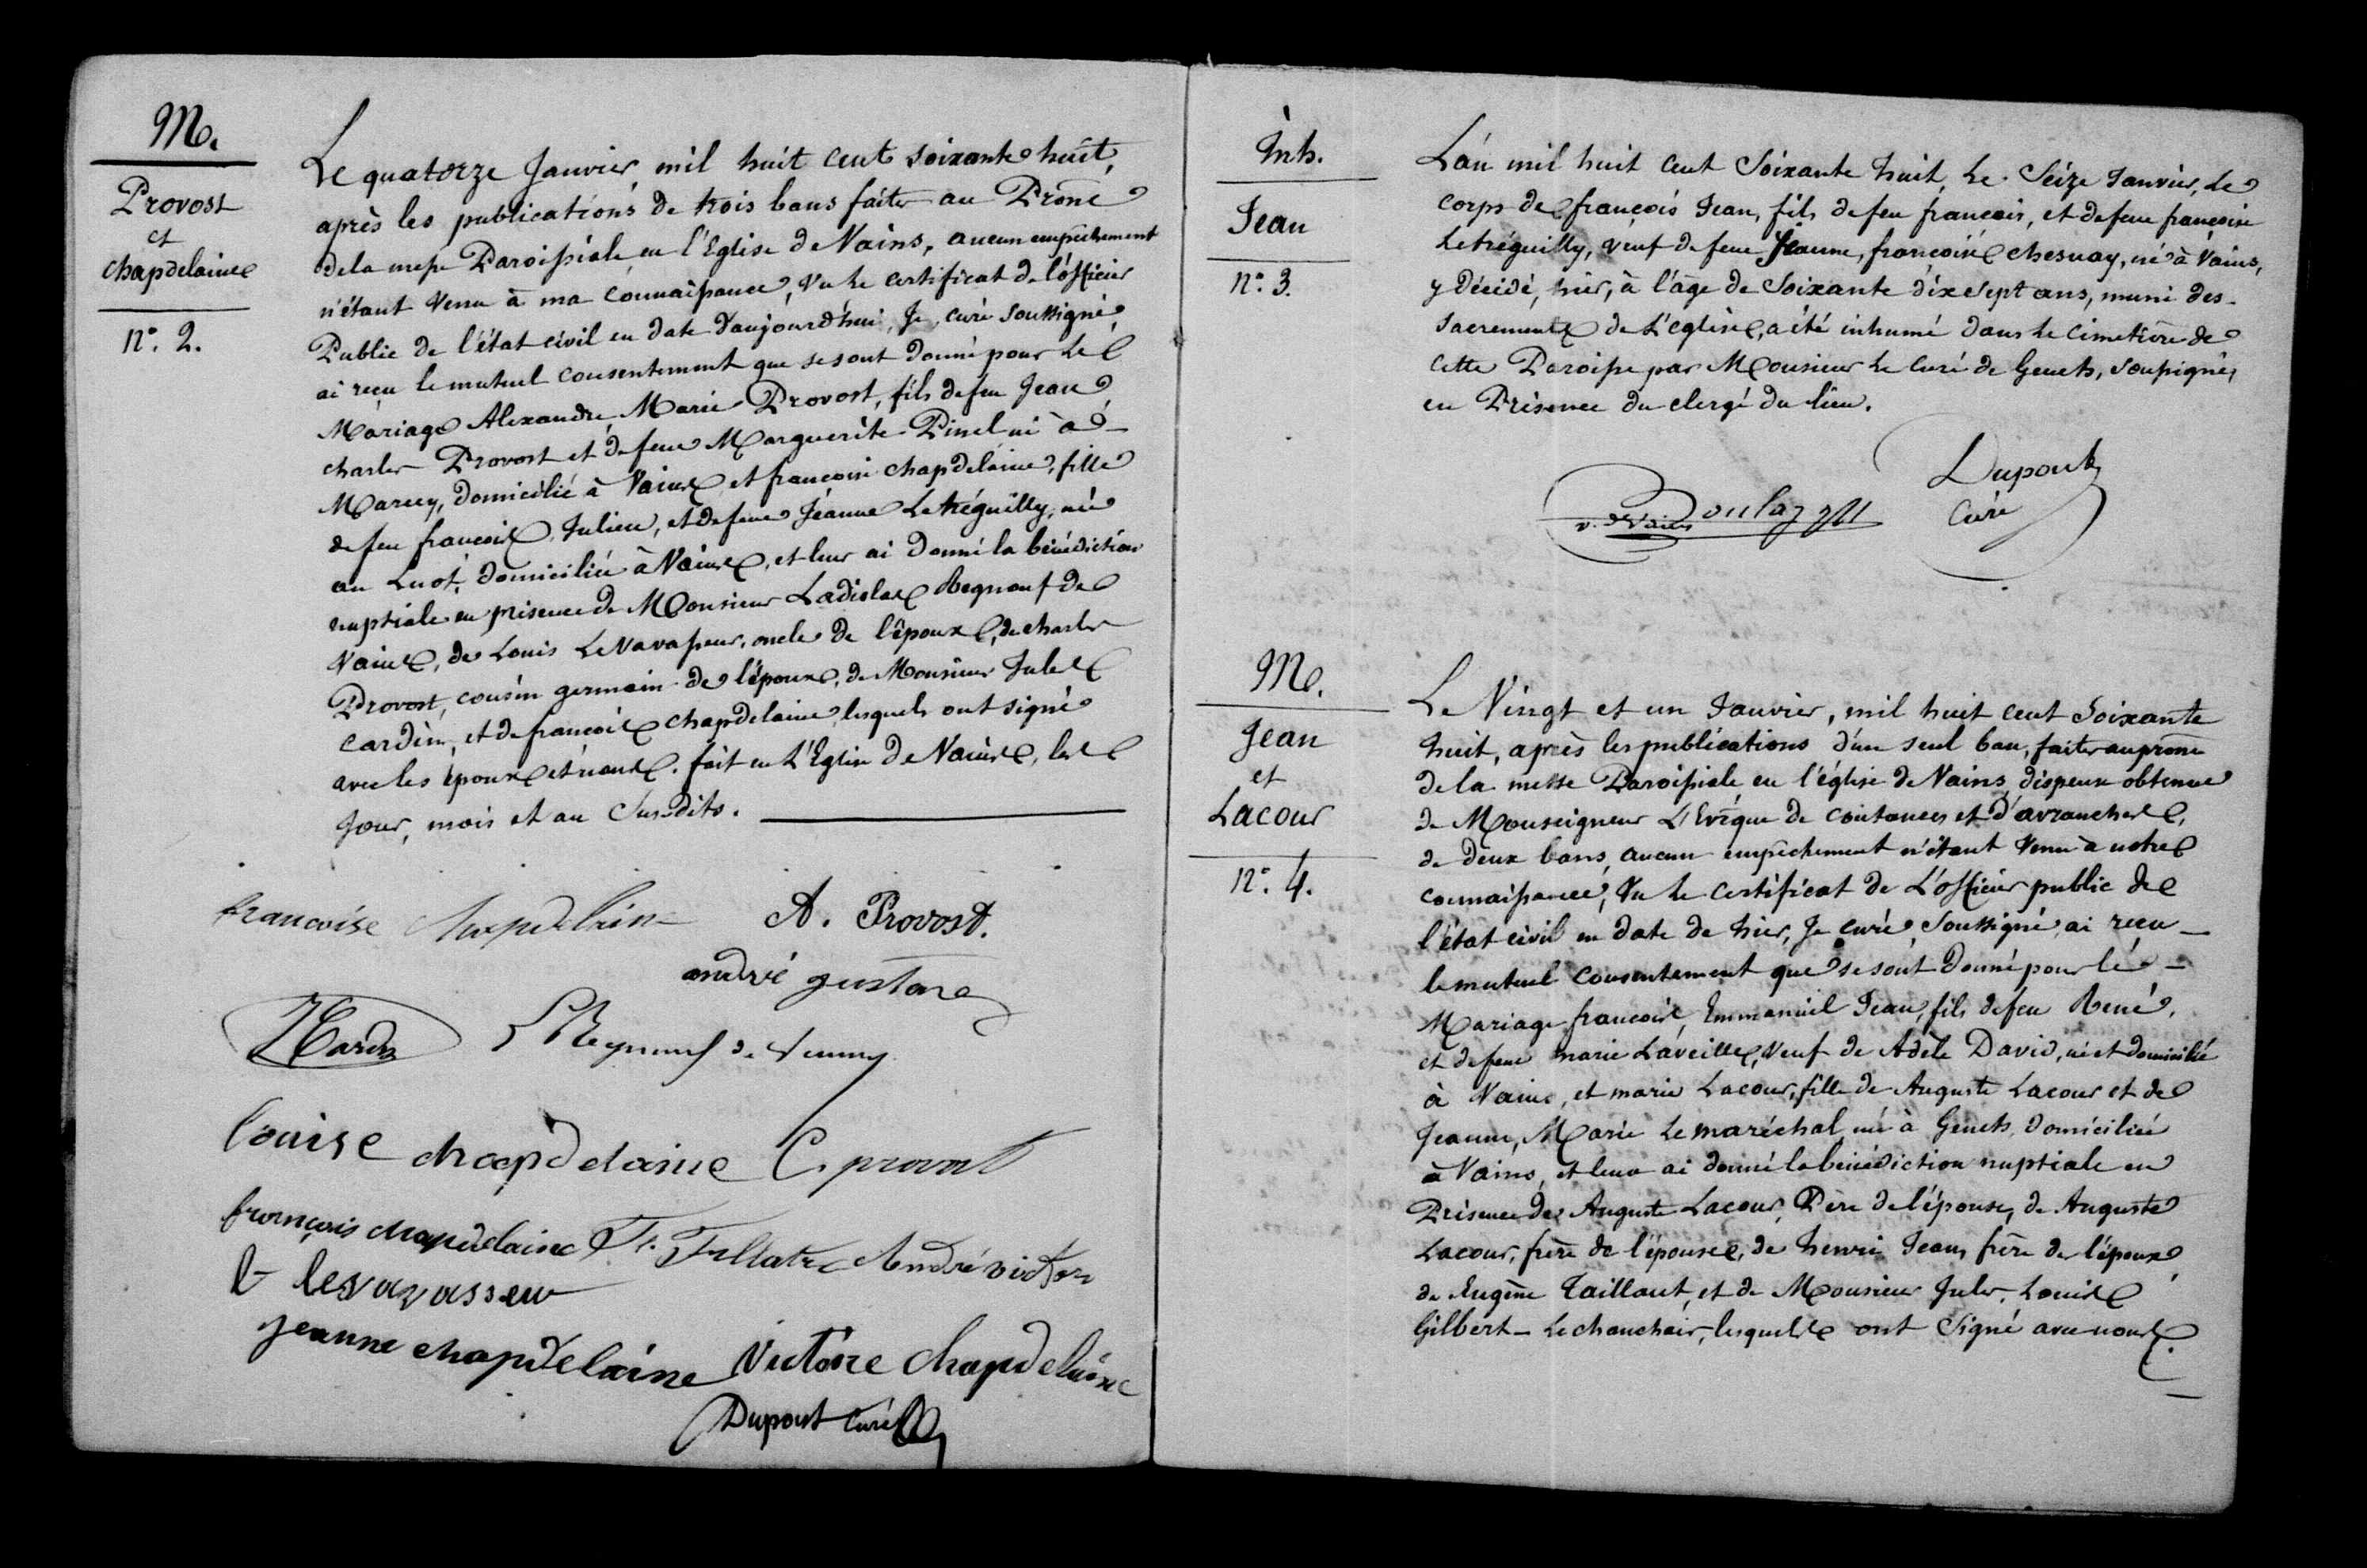 M.
Provost
et
chapdelaine
n°. 2.
Le quatorze Janvier mil huit cent soixante huit,
après les publications de trois bans faites au Prône
de la messe Paroissiale en l'Eglise de Vains, aucun empêchement
n'étant venu à ma connaissance, Vu le certificat de l'officier
Public de l'état civil en date d'aujourd'hui, Je, curé soussigné
ai reçu le mutuel consentement que se sont donné pour le
Mariage Alexandre Marie Provost, fils de feu Jean
charles Provost et de feue Marguerite Pinel né à
Marcey, domicilié à Vains et françoise chapdelaine, fille
de feu françois Julien, et de feue Jéanne Letréguilly, née
au Luot, domiciliée à Vains, et leur ai donné la bénédiction
nuptiale en présence de Monsieur Ladislas Regnouf de
Vains, de Louis Levavasseur, oncle de l'époux, de charles
Provost, cousin germain de l'époux, de Monsieur Jules
Cardin, et de françois chapdelaine lesquels ont signé
avec les époux et nous. fait en L'Eglise de Vains, les
Jour, mois et an susdits.
francoise chapdelaine A. Provost.
andré gustave
Regnouf de
louise chapdelaine C. provost
françois chapdelaine André victor
L levavasseur
jeanne chapdelaine Victoire chapdelaine
Dupont curé
Inh.
Jean
n°. 3.
L'an mil huit cent Soixante huit, Le Seize Janvier, Le
corps de françois Jean, fils de feu françois, et de feue françoise
Letréguilly, veuf de feue Jeanne, françoise chesnay, né à Vains,
y décédé, hier, à l'âge de Soixante dix sept ans, muni des
sacrements de L'église, a été inhumé dans le cimetière de
cette Paroisse par Monsieur le Curé de Genets, soussigné,
en Présence du clergé du lieu.
Dupont
Curé
v. de Vains
M.
Jean
et
Lacour
n°. 4.
Le Vingt et un Janvier, mil huit cent Soixante
huit, après les publications d'un seul ban, faites au prône
de la messe Paroissiale en l'église de Vains, dispense obtenue
de Monseigneur L'Evêque de Coutances et d'avranches,
de deux bans, aucun empêchement n'étant venu à notre
connaissance, Vu le certificat de L'officier public de
l'état civil en date de hier, Je curé Soussigné ai reçu
le mutuel consentement que se sont donné pour le
Mariage françois, Emmanuel Jean, fils de feu René,
et de feue marie Laveille, veuf de Adèle David, né et domicilié
à Vains, et marie Lacour, fille de Auguste Lacour et de
Jeanne, Marie Lemaréchal, née à Genets, domiciliée
à Vains, et leur ai donné la bénédiction nuptiale en
Présence de Auguste Lacour, Père de l'épouse, de Auguste
Lacour, frère de l'épouse, de henri Jean, frère de l'époux,
de Eugène Taillaut, et de Monsieur Jules, Louis
Gilbert Lechanchoir, lesquels ont Signé avec nous.